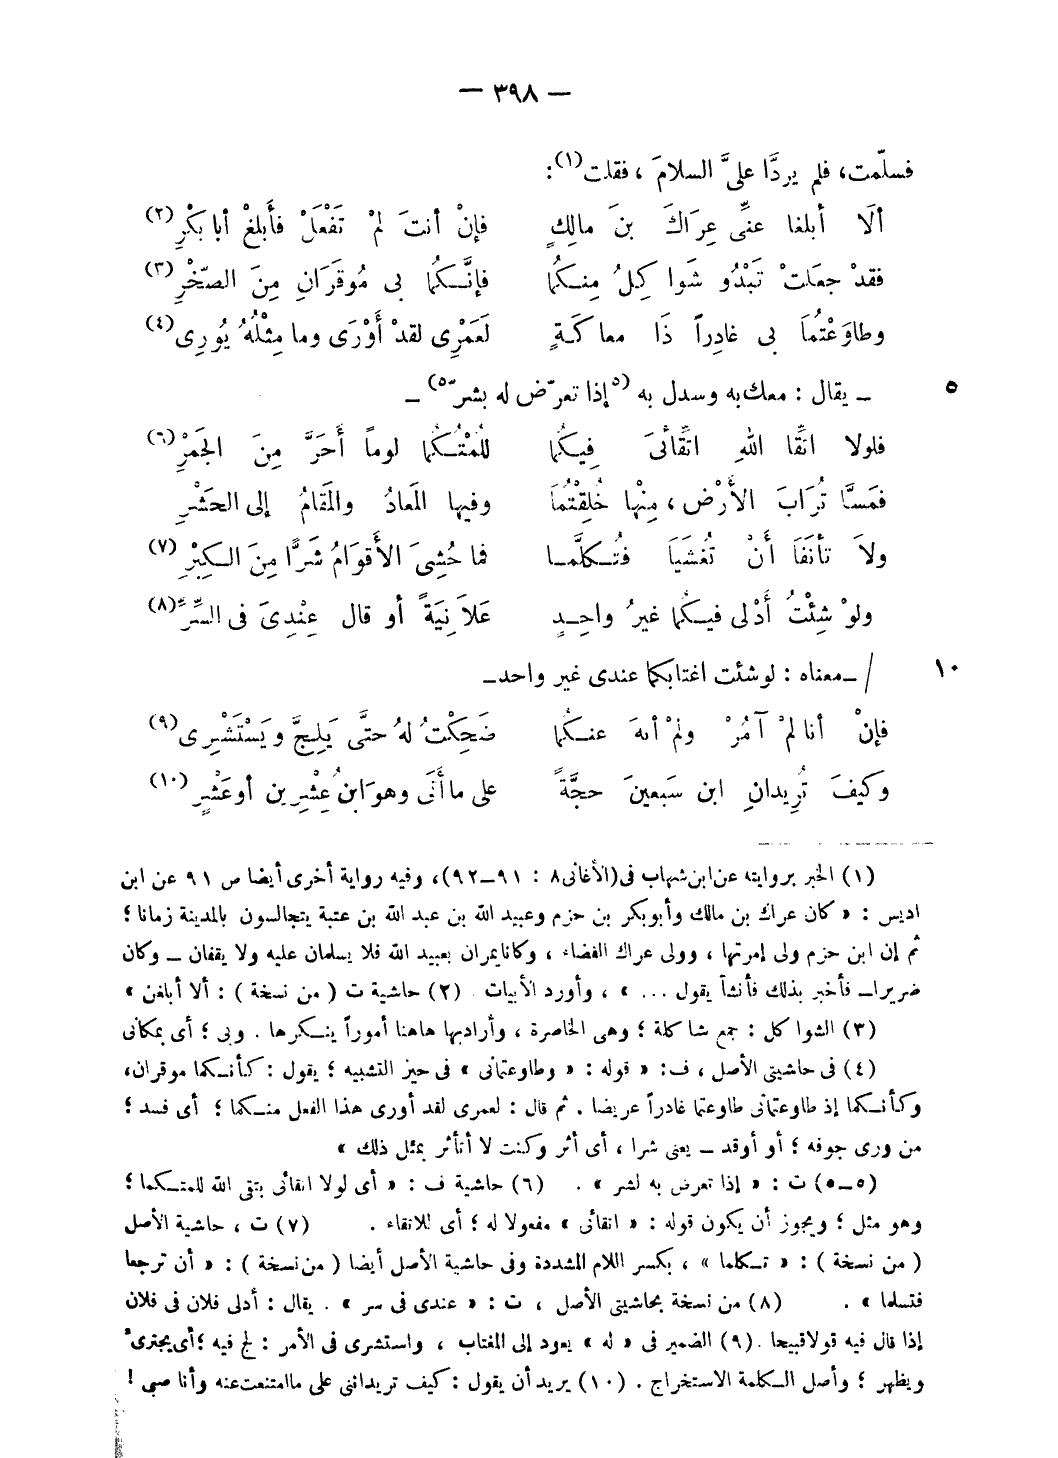 — ٣٩٨ —
فسلّمت، فلم يردَّا علىَّ السلامَ ، فقلت(١):
ألَا أبلغا عنِّى عِرَاكَ بنَ مالِكٍ فإنْ أنتَ لمْ تَفْعَلْ فأَبلغْ أبا بَكْرِ(٢)
فقدْ جعَلتْ تَبْدُو شَوا كِلُ مِنـكُما فإنَّـكُما بى مُوقَرَانِ مِنَ الصّخْرِ(٣)
وطاوَعْتُمَا بى غادِراً ذَا معاكَـةٍ لَعَمْرِى لقدْ أَوْرَى وما مِثْلُهُ يُورِى(٤)
٥ ـ يقال : معك به وسدل به (٥إذا تعرّض له بشرّ٥) ـ
فلولا اتقَا اللهِ اتقَائىَ فِيـكُما للُمْتُـكُما لوماً أَحَرَّ مِنَ الجَمْرِ(٦)
فمَسَّا تُرَابَ الأَرْضِ، مِنْها خُلِقْتُمَا وفيها المَعادُ والمَقَامُ إلى الحَشْرِ
ولاَ تأنَفَا أَنْ تُغشَيَا فتُـكلَّمـا فما حُشِىَ الأَقْوَامُ شَرًّا مِنَ الـكِبْرِ(٧)
ولوْ شِئْتُ أَدْلى فيـكُما غيرُ واحِـدٍ عَلاَنِيَةً أو قال عِنْدِىَ فى السِّرِّ(٨)
١٠ / ـ معناه : لو شئت اغتابكما عندى غير واحد ـ
فإنْ أنا لمْ آمُرْ ولمْ أنهَ عنـكُما ضَحِكْتُ لهُ حتَّى يَلِجَّ ويَسْتَشْرِى(٩)
وكيفَ تُرِيدانِ ابن سَبعينَ حجَّةً على ما أَتَى وهوَ ابنُ عِشْرِين أو عَشْرِ(١٠)
(١) الخبر بروايته عن ابن شهاب فى (الأغانى ٨ : ٩١ـ٩٢)، وفيه رواية أخرى أيضا ص ٩١ عن ابن
اديس : « كان عراك بن مالك وأبوبكر بن حزم وعبيد الله بن عبد الله بن عتبة يتجالسون بالمدينة زمانا ؛
ثم إن ابن حزم ولى إمرتها ، وولى عراك القضاء ، وكانا يمران بعبيد الله فلا يسلمان عليه ولا يقفان ـ وكان
ضريراـ فأخبر بذلك فأنشأ يقول ... » ، وأورد الأبيات . (٢) حاشية ت ( من نسخة ) : ألا أبلغن »
(٣) الشواكل : جمع شاكلة ؛ وهى الخاصرة ، وأراد بها هاهنا أموراً ينـكرها . وبى ؛ أى بمكانى
(٤) فى حاشيتى الأصل ، ف: « قوله : « وطاوعتمانى » فى حيز التشبيه ؛ يقول : كأنـكما موقران،
وكأنـكما إذ طاوعتمانى طاوعتما غادراً عريضا . ثم قال : لعمرى لقد أورى هذا الفعل منـكما ؛ أى فسد ؛
من ورى جوفه ؛ أو أوقد ـ يعنى شرا ، أى أثر وكنت لا أتأثر بمثل ذلك »
(٥ـ٥) ت : « إذا تعرض به لشر » . (٦) حاشية ف : « أى لولا اتقائى بتقى الله للمتـكما ؛
وهو مثل ؛ ويجوز أن يكون قوله : « اتقائى » مفعولا له ؛ أى للاتقاء . (٧) ت ، حاشية الأصل
( من نسخة ) : « تـكلما » ، بكسر اللام المشددة وفى حاشية الأصل أيضا ( من نسخة ) : « أن ترجعا
فتسلما » . (٨) من نسخة بحاشيتى الأصل ، ت : « عندى فى سر » . يقال : أدلى فلان فى فلان
إذا قال فيه قولا قبيحا . (٩) الضمير فى « له » يعود إلى المغتاب ، واستشرى فى الأمر : لج فيه ؛ أى يجترئ
ويظهر ؛ وأصل الـكلمة الاستخراج . (١٠) يريد أن يقول : كيف تريداننى على ما امتنعت عنه وأنا صبى !